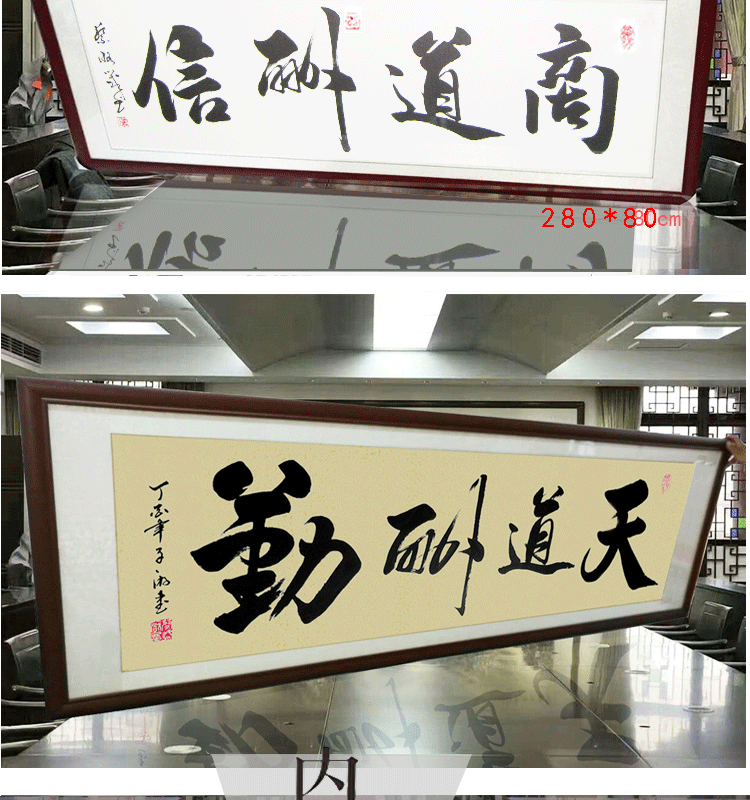 商道酬信
280*80cm
天道酬勤
丁酉年子初書
内